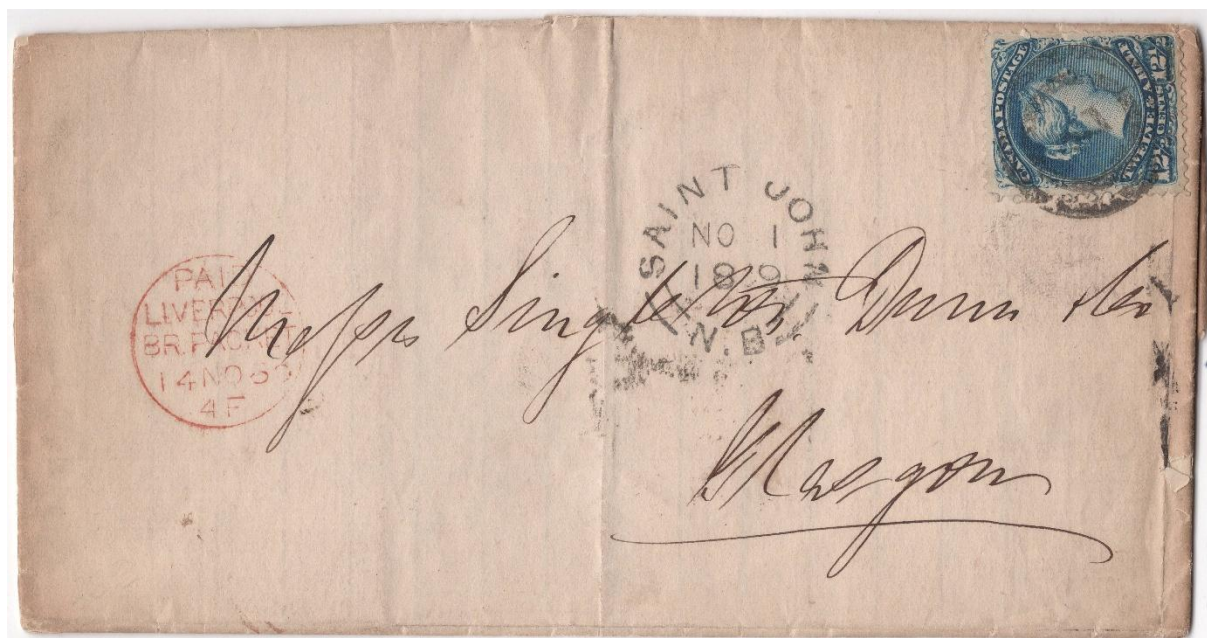 CANADA POSTAGE
TWELVE & A HALF
12½ CENTS 12½
SAINT JOHN
NO 1
18 9
N.B
PAID
LIVERPOOL
BR.PACKET
14 NO 69
4F
Messrs Singleton Dunn & Co
Glasgow